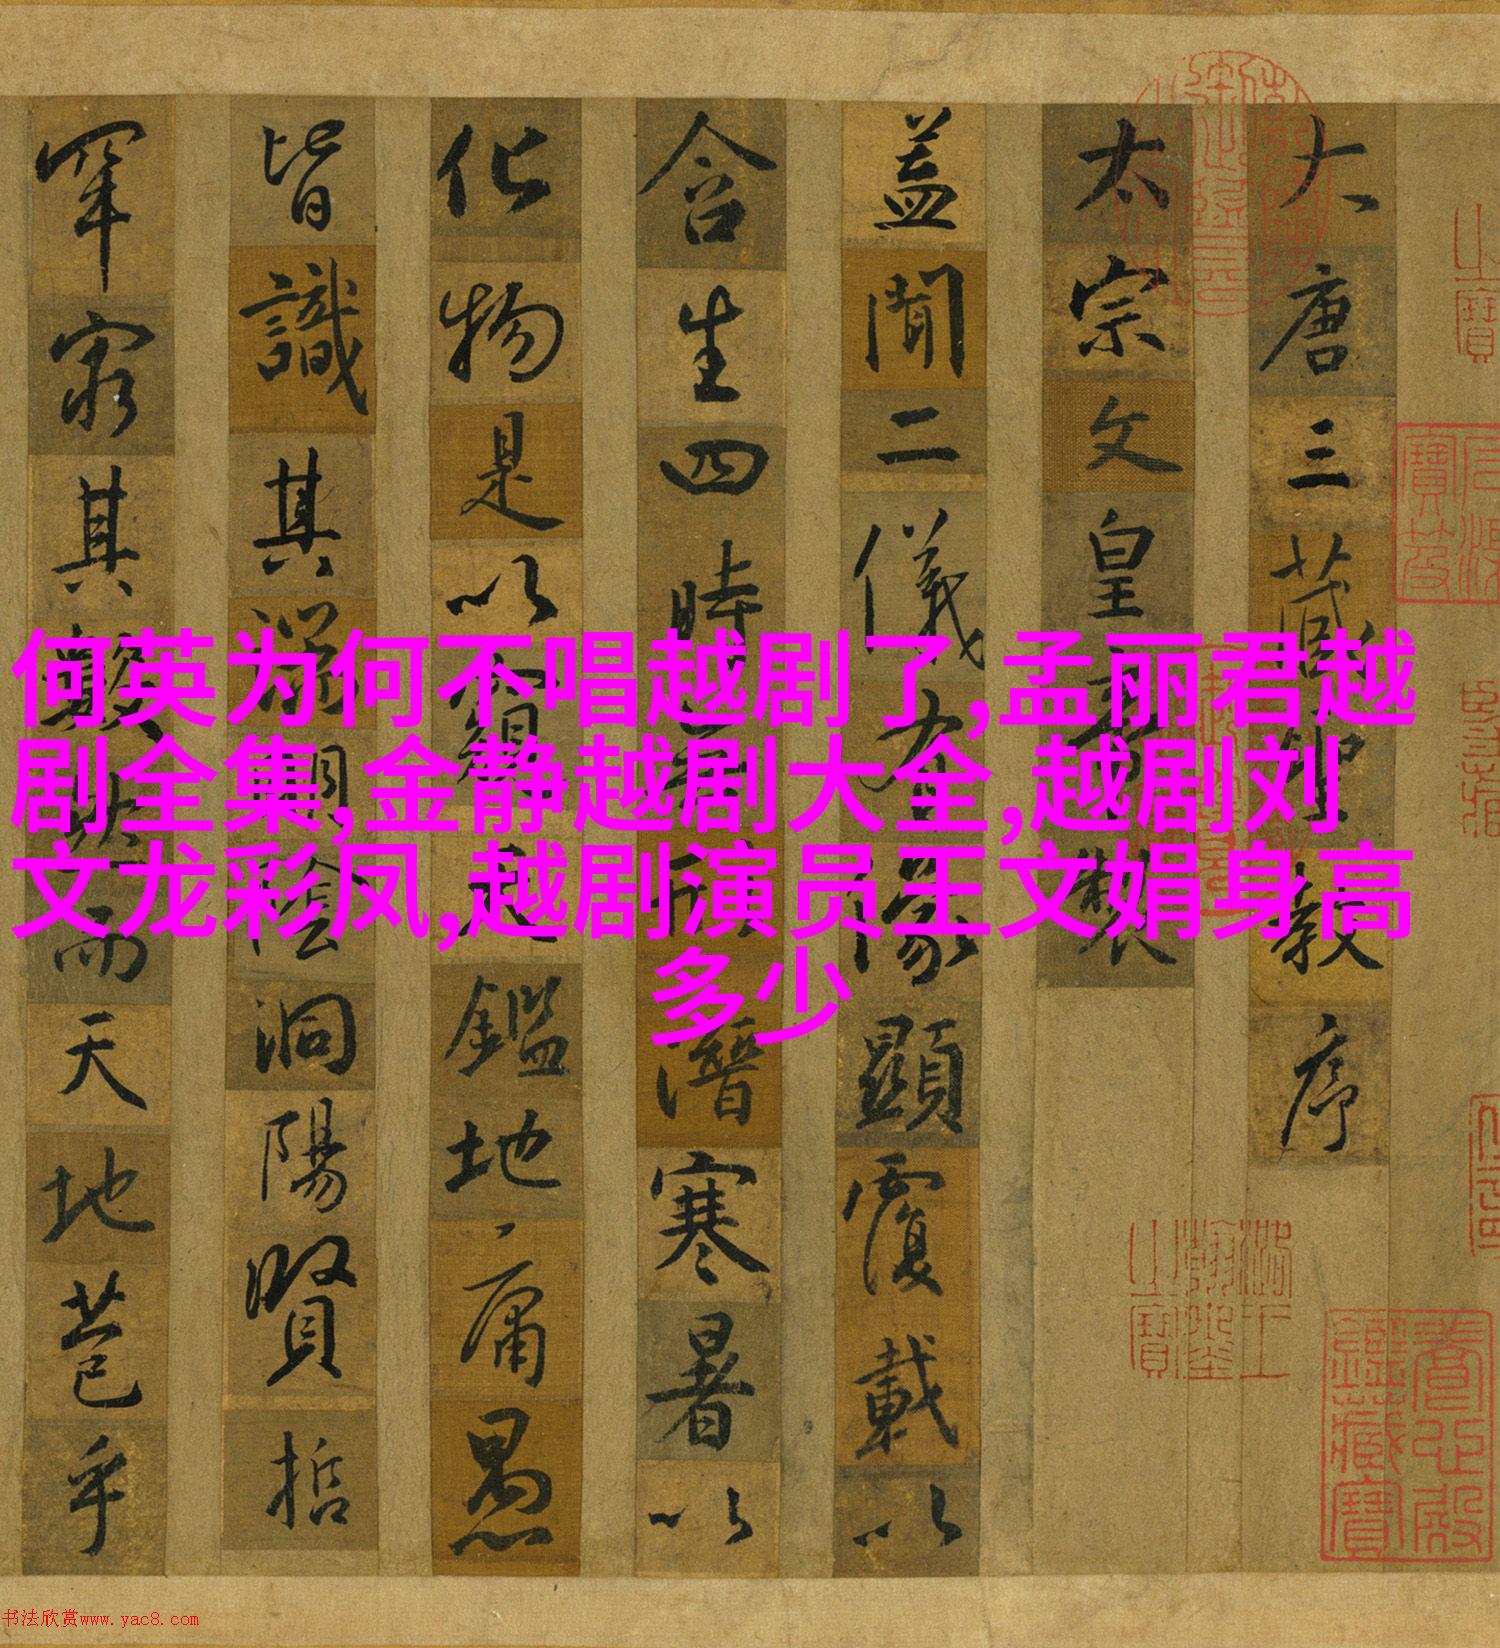 大唐三藏聖教序
太宗文皇帝製
盖聞二儀有像顯覆載以
含生四時無形潛寒暑以
化物是以窺天鑑地庸愚
皆識其端明陰洞陽賢哲
罕窮其數然而天地苞乎
何英为何不唱越剧了,孟丽君越
剧全集,金静越剧大全,越剧刘
文龙彩凤,越剧演员王文娟身高
多少
石渠
寶笈
養心殿
鑑藏寶
书法欣赏www.yac8.com